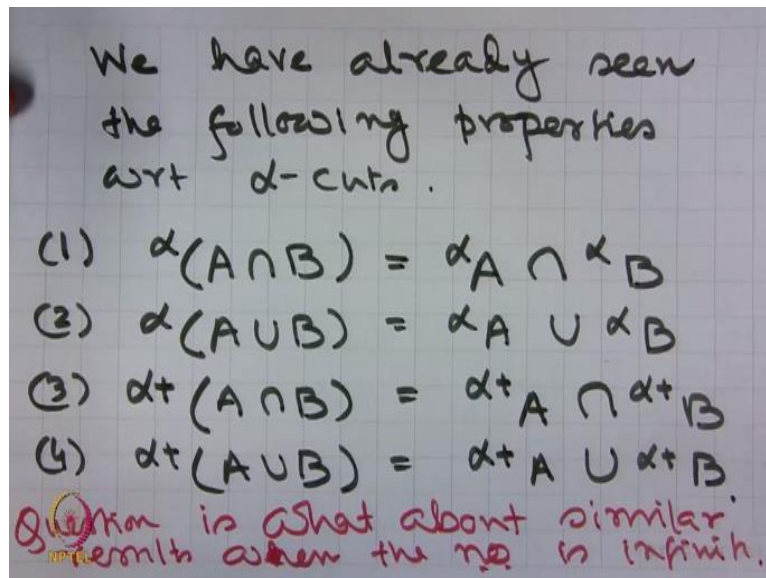 We have already seen
the following properties
wrt α-cuts.
(1) α(A∩B) = αA ∩ αB
(2) α(A∪B) = αA ∪ αB
(3) α+(A∩B) = α+A ∩ α+B
(4) α+(A∪B) = α+A ∪ α+B.
Question is what about similar
NPTEL
results when the no is infinit.